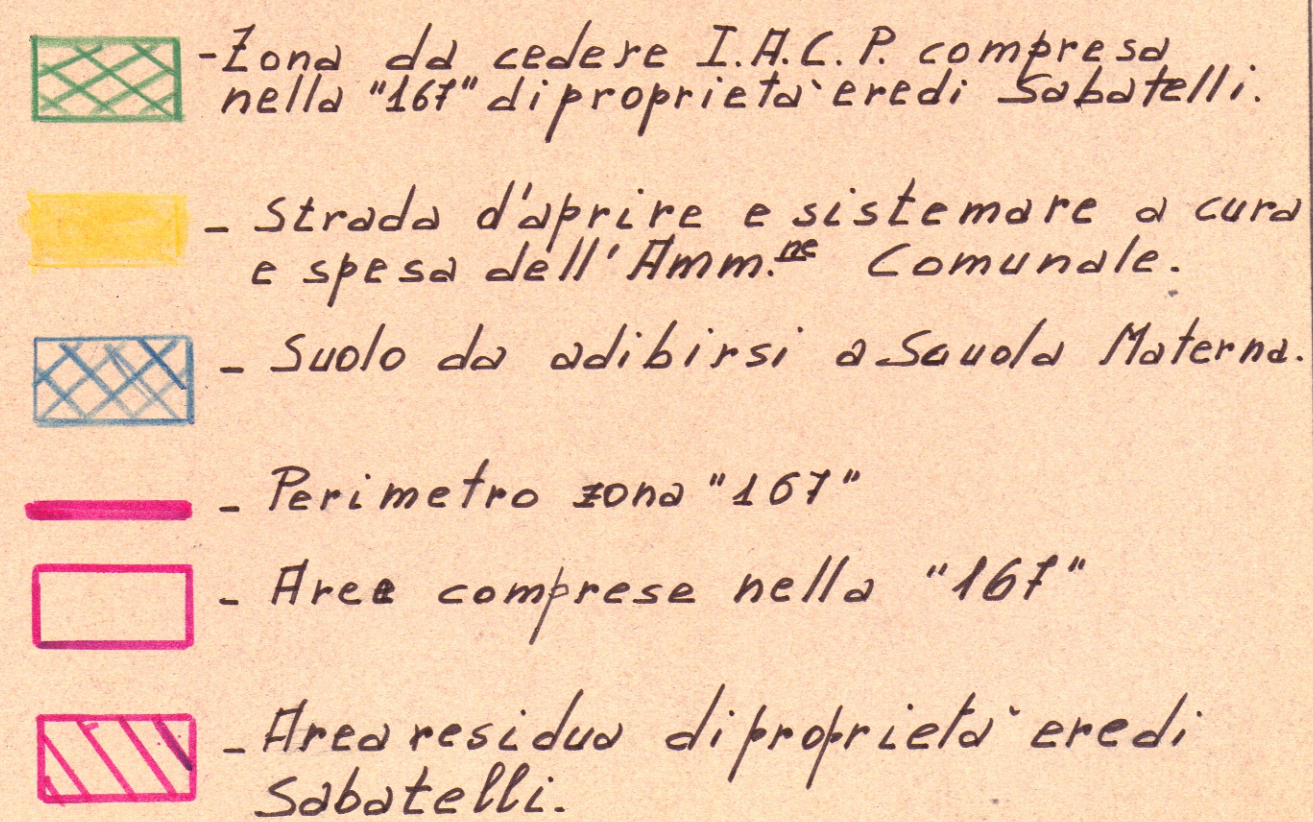 -Zona da cedere I.A.C.P. compresa
nella "167" di proprietà eredi Sabatelli.
- Strada d'aprire e sistemare a cura
e spesa dell'Amm.ne Comunale.
- Suolo da adibirsi a Scuola Materna.
- Perimetro zona "167"
- Aree comprese nella "167"
- Area residua di proprietà eredi
Sabatelli.